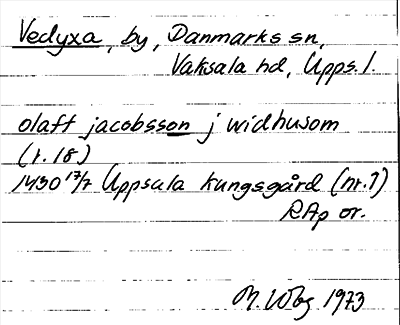 Vedyxa, by, Danmarks sn,
Vaksala hd, Upps. l.
olaff jacobsson j widhusom
(r. 18)
1430 17/7 Uppsala kungsgård (nr. 1)
RAp or.
1973